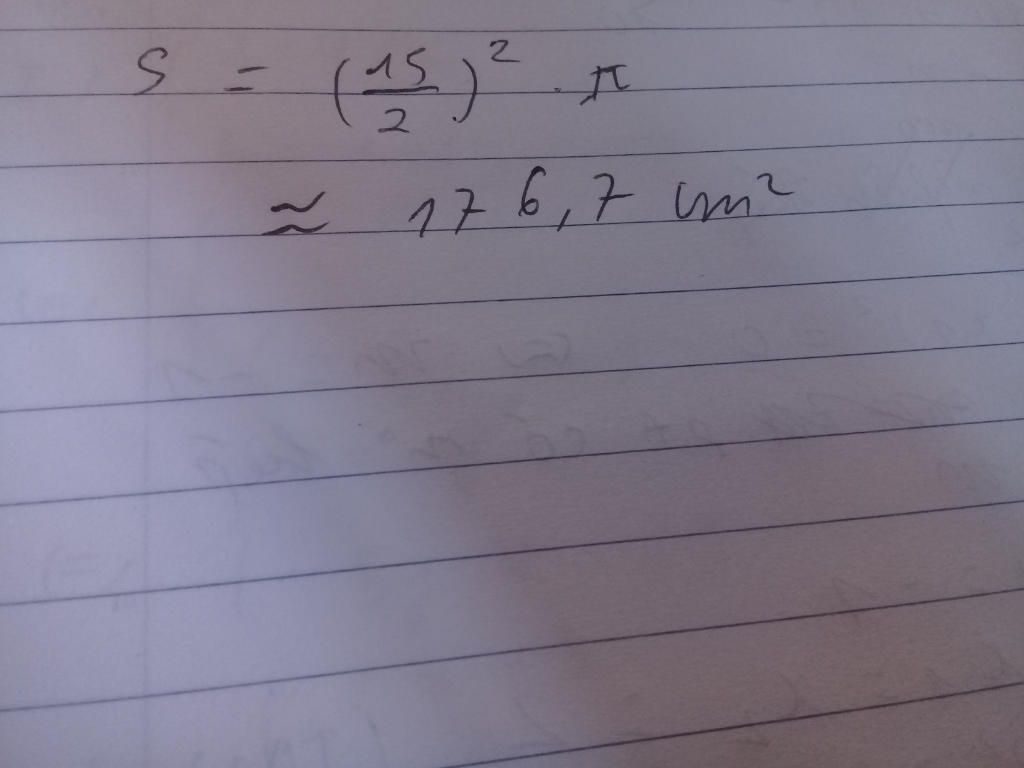 S = (15/2)² · π
≈ 176,7 cm²